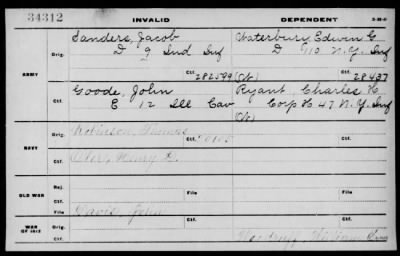 34312 INVALID DEPENDENT
ARMY
Orig. Sanders, Jacob Waterbury, Edwin G
D 9 Ind Inf D 110 N.Y. Inf
Ctf. 282599 (W) Ctf. 28437
Orig. Goode, John Ryant, Charles H
Ctf. E 12 Ill Cav Corp H 47 N.Y. Inf
(W)
NAVY
Orig. Robinson, Thomas Ctf.
Ctf. Henry
OLD WAR
Rej. File
Ctf. File
WAR OF 1812
Orig. Davis, John Ctf.
Ctf. Woodruff, William